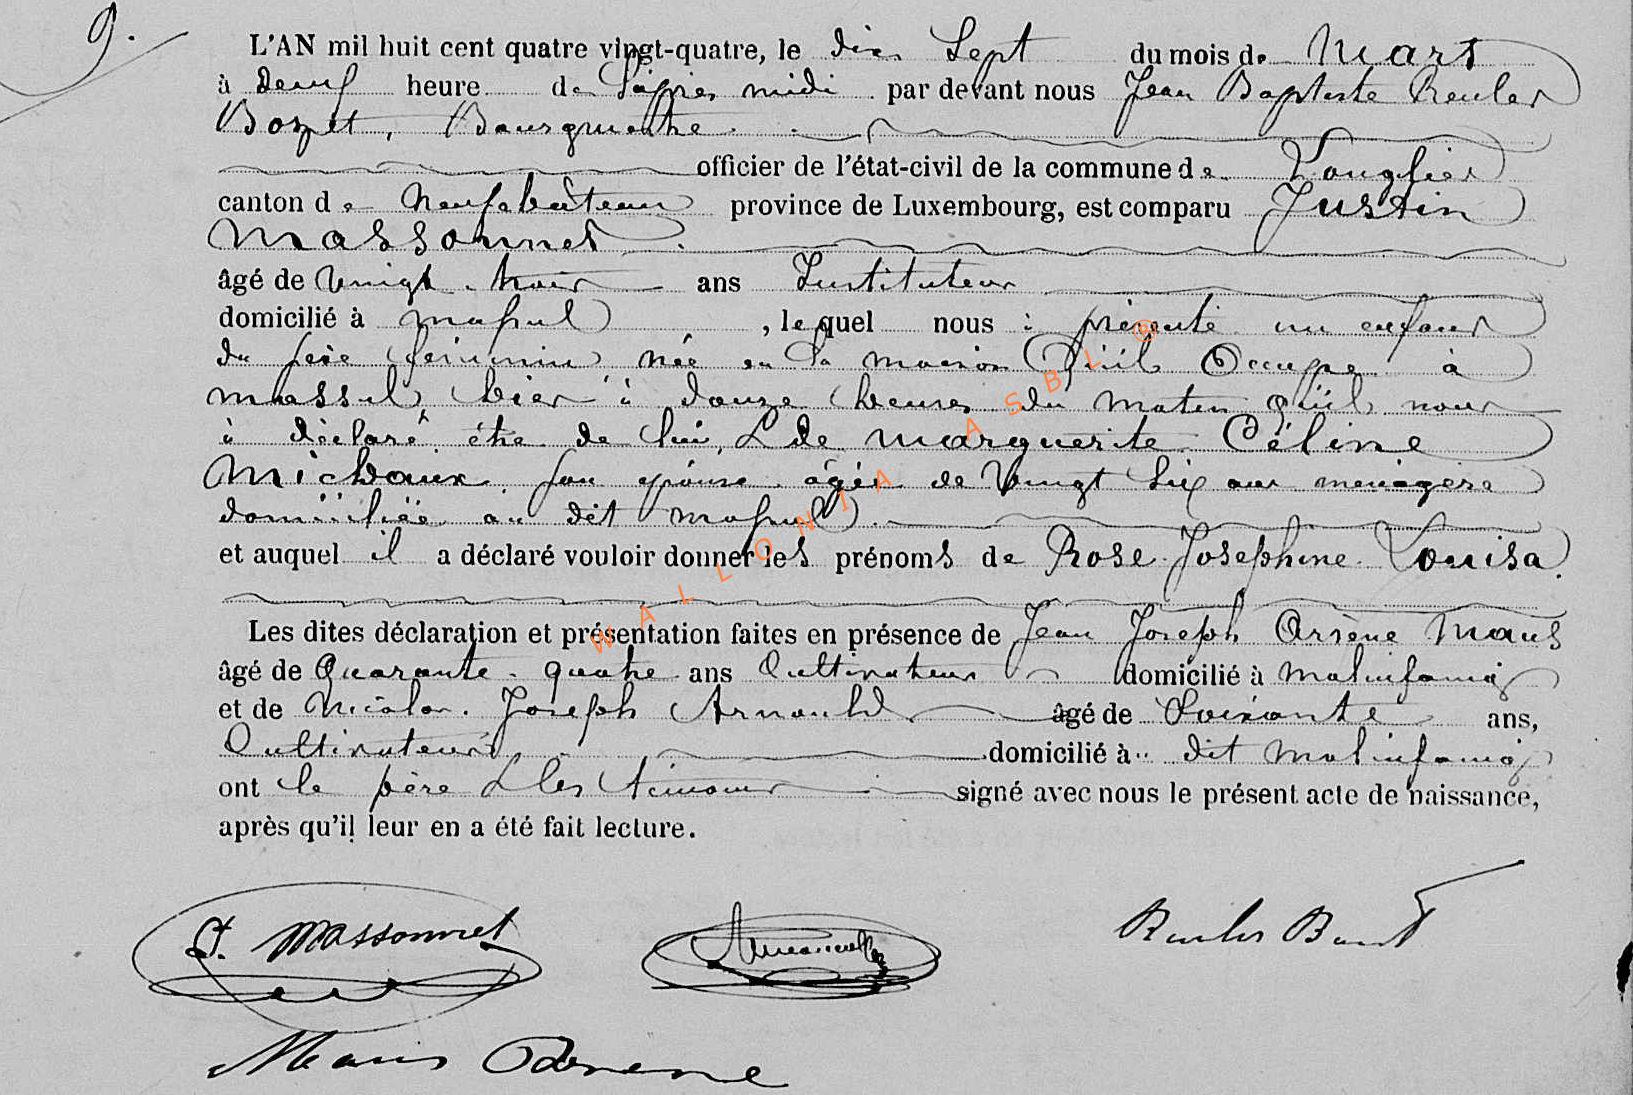 9.
L'AN mil huit cent quatre vingt-quatre, le dix Sept du mois de Mars
à deux heure de l'après midi par devant nous Jean Baptiste Reuler
Bozet, Bourgmestre.
officier de l'état-civil de la commune de Longlier
canton de Neufchâteau province de Luxembourg, est comparu Justin
Massonnet.
âgé de Vingt-trois ans Instituteur
domicilié à Massul, lequel nous à présenté un enfant
du sexe féminin née en la maison qu'il Occupe à
Massul hier à douze heures du matin qu'il nous
à déclaré être de lui, & de Marguerite Céline
Michaux son épouse âgée de Vingt Six ans ménagère
domiciliée au dit Massul.
et auquel il a déclaré vouloir donner les prénoms de Rose Josephine Louisa.
Les dites déclaration et présentation faites en présence de Jean Joseph Arsène Maus
âgé de Quarante-quatre ans Cultivateur domicilié à Molinfaing
et de Nicolas Joseph Arnould âgé de Soixante ans,
Cultivateur, domicilié à dit Molinfaing
ont le père & les témoins signé avec nous le présent acte de naissance,
après qu'il leur en a été fait lecture.
Massonnet
Reuler Bozet
Maus Arsene
WALLONIA ASBL ©